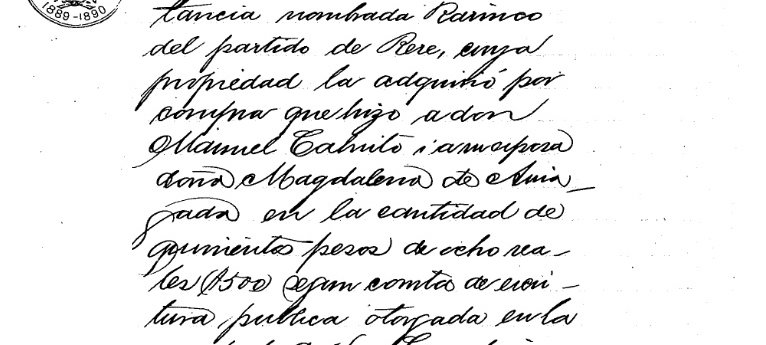 1889-1890
tancia nombrada Rarinco
del partido de Rere, cuya
propiedad la adquirió por
compra que hizo a don
Manuel i a su esposa
doña Magdalena de Aria_
gada en la cantidad de
quinientos pesos de ocho rea_
les ($500 segun consta de escri_
tura publica otorgada en la